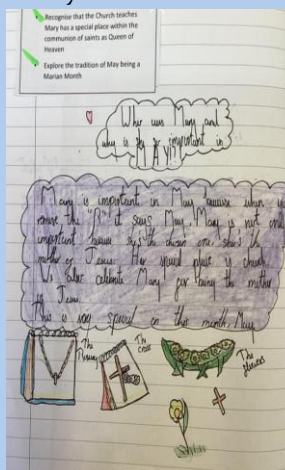 Recognise that the Church teaches
Mary has a special place within the
communion of saints as Queen of
Heaven
Explore the tradition of May being a
Marian Month
Who was Mary and
why is she so important in
MAY?
Mary is important in May because when you
remove the "R" it says May. Mary is not only
important because she's the chosen one, she's the
mother of Jesus. Her special place is church.
We also celebrate Mary for being the mother
of Jesus.
This is very special on this month. May
The
Rosary
The
cross
The
flowers